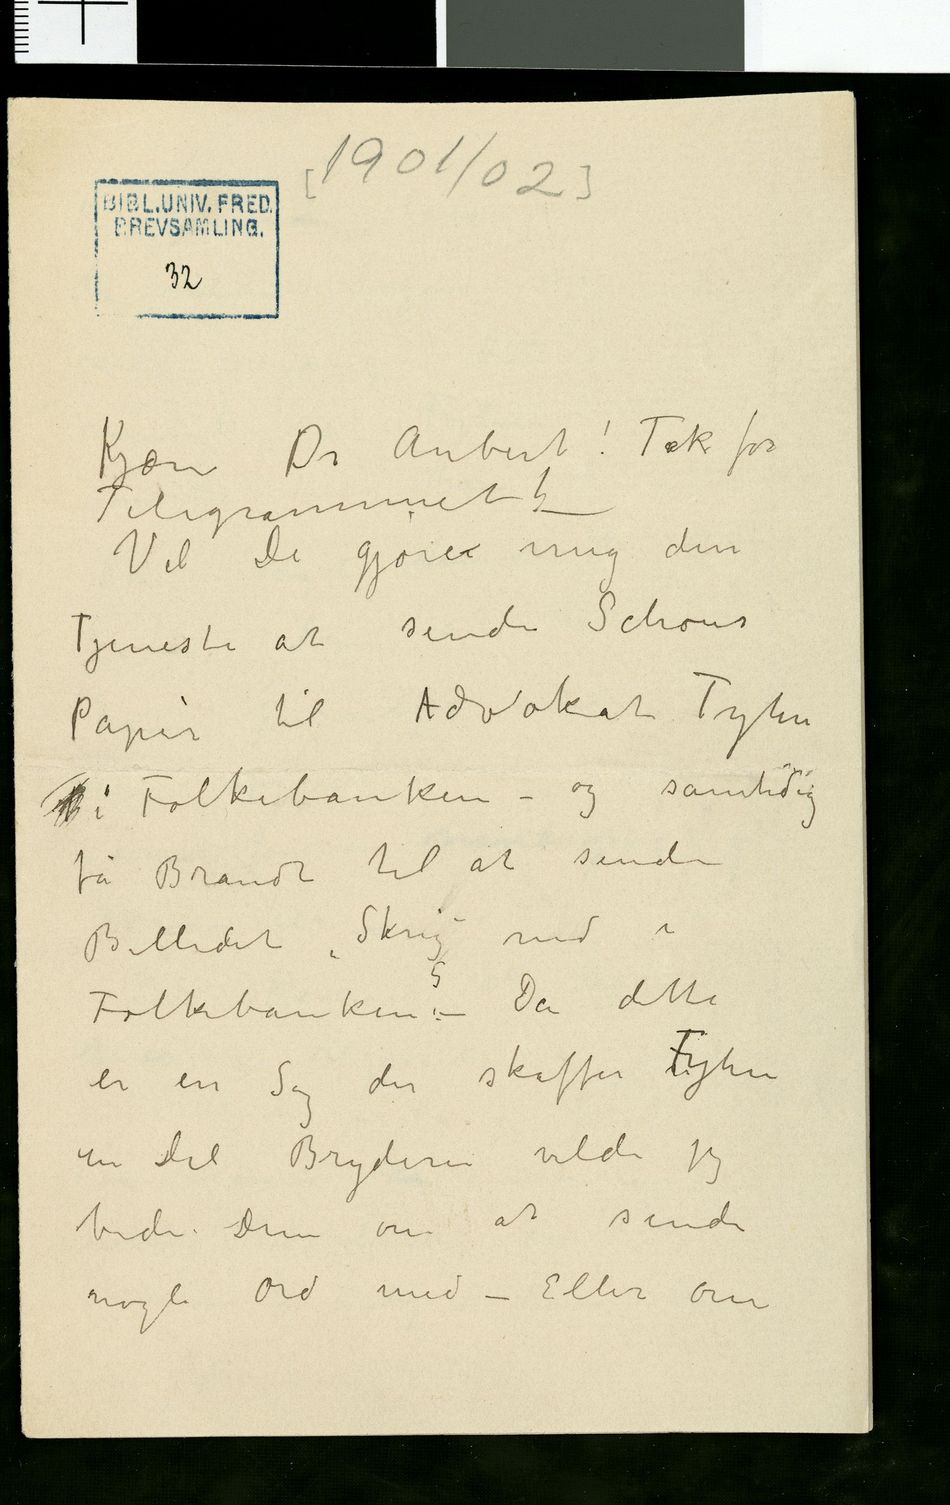 [1901/02]
BIBL.UNIV. FRED.
BREVSAMLING.
32
Kjære Dr Aubert! Tak for
Telegrammet! –
Vil De gjøre mig den
Tjeneste at sende Schous
Papir til Advokat Tyhn
i Folkebanken – og samtidig
få Brandt til at sende
Billedet „Skrig“ ned i
Folkebanken – Da dette
er en Sag der skaffer Tyhn
en Del Bryderi vilde jeg
bede Dem om at sende
nogle Ord med – Eller om